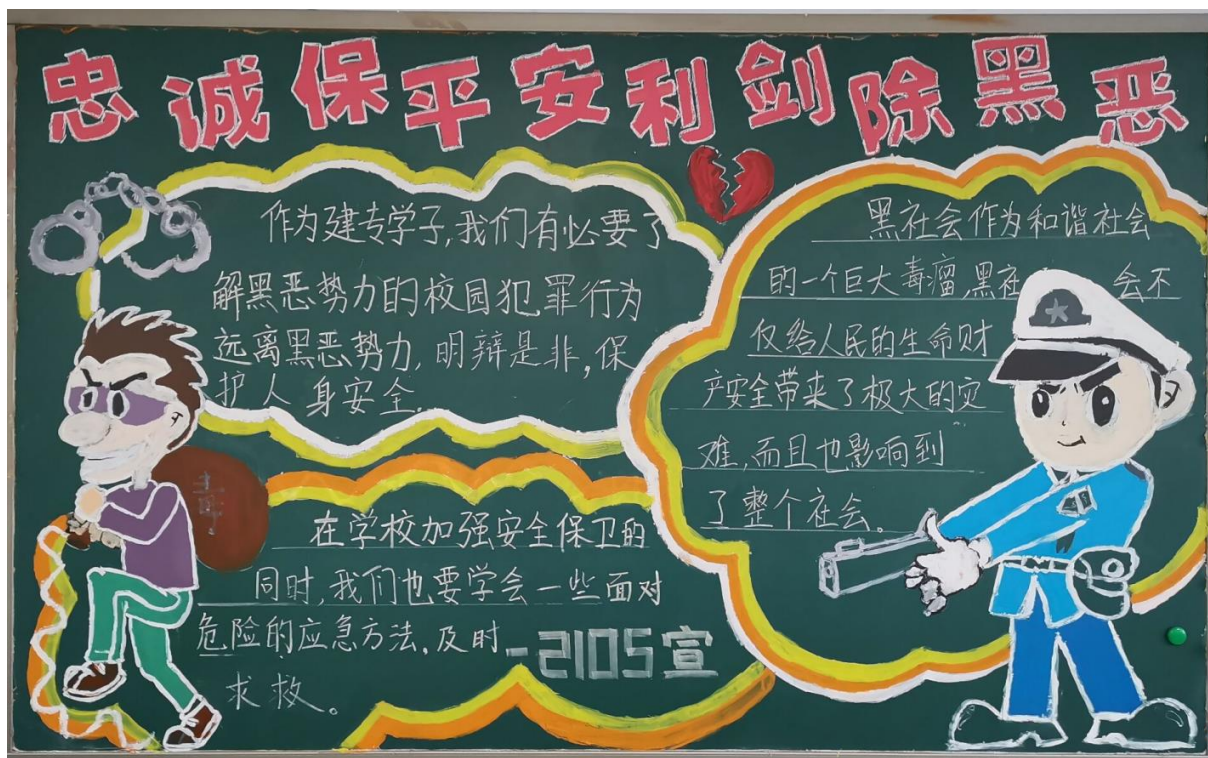 忠诚保平安利剑除黑恶
作为建专学子,我们有必要了
解黑恶势力的校园犯罪行为
远离黑恶势力,明辩是非,保
护人身安全.
在学校加强安全保卫的
同时,我们也要学会一些面对
危险的应急方法,及时
求救。
-2105宣
黑社会作为和谐社会
的一个巨大毒瘤,黑社会不
仅给人民的生命财
产安全带来了极大的灾
难,而且也影响到
了整个社会。